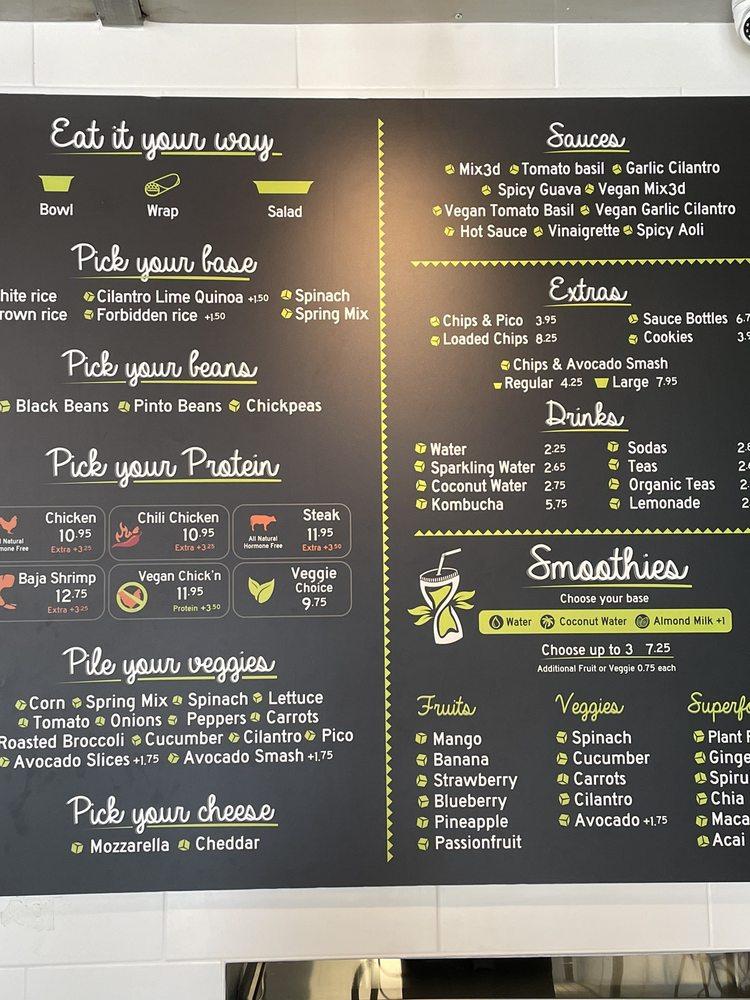 Eat it your way
Bowl
Wrap
Salad
Pick your base
hite rice Cilantro Lime Quinoa +1.50 Spinach
rown rice Forbidden rice +1.50 Spring Mix
Pick your beans
Black Beans Pinto Beans Chickpeas
Pick your Protein
Chicken
10.95
Extra +3.25
l Natural
mone Free
Chili Chicken
10.95
Extra +3.25
Steak
11.95
Extra +3.50
All Natural
Hormone Free
Baja Shrimp
12.75
Extra +3.25
Vegan Chick'n
11.95
Protein +3.50
Veggie
Choice
9.75
Pile your veggies
Corn Spring Mix Spinach Lettuce
Tomato Onions Peppers Carrots
Roasted Broccoli Cucumber Cilantro Pico
Avocado Slices +1.75 Avocado Smash +1.75
Pick your cheese
Mozzarella Cheddar
Sauces
Mix3d Tomato basil Garlic Cilantro
Spicy Guava Vegan Mix3d
Vegan Tomato Basil Vegan Garlic Cilantro
Hot Sauce Vinaigrette Spicy Aoli
Extras
Chips & Pico 3.95 Sauce Bottles 6.7
Loaded Chips 8.25 Cookies 3.9
Chips & Avocado Smash
Regular 4.25 Large 7.95
Drinks
Water 2.25 Sodas 2.8
Sparkling Water 2.65 Teas 2.
Coconut Water 2.75 Organic Teas 2.
Kombucha 5.75 Lemonade 2.
Smoothies
Choose your base
Water Coconut Water Almond Milk +1
Choose up to 3 7.25
Additional Fruit or Veggie 0.75 each
Fruits
Mango
Banana
Strawberry
Blueberry
Pineapple
Passionfruit
Veggies
Spinach
Cucumber
Carrots
Cilantro
Avocado +1.75
Superfo
Plant P
Ginge
Spiru
Chia
Maca
Acai